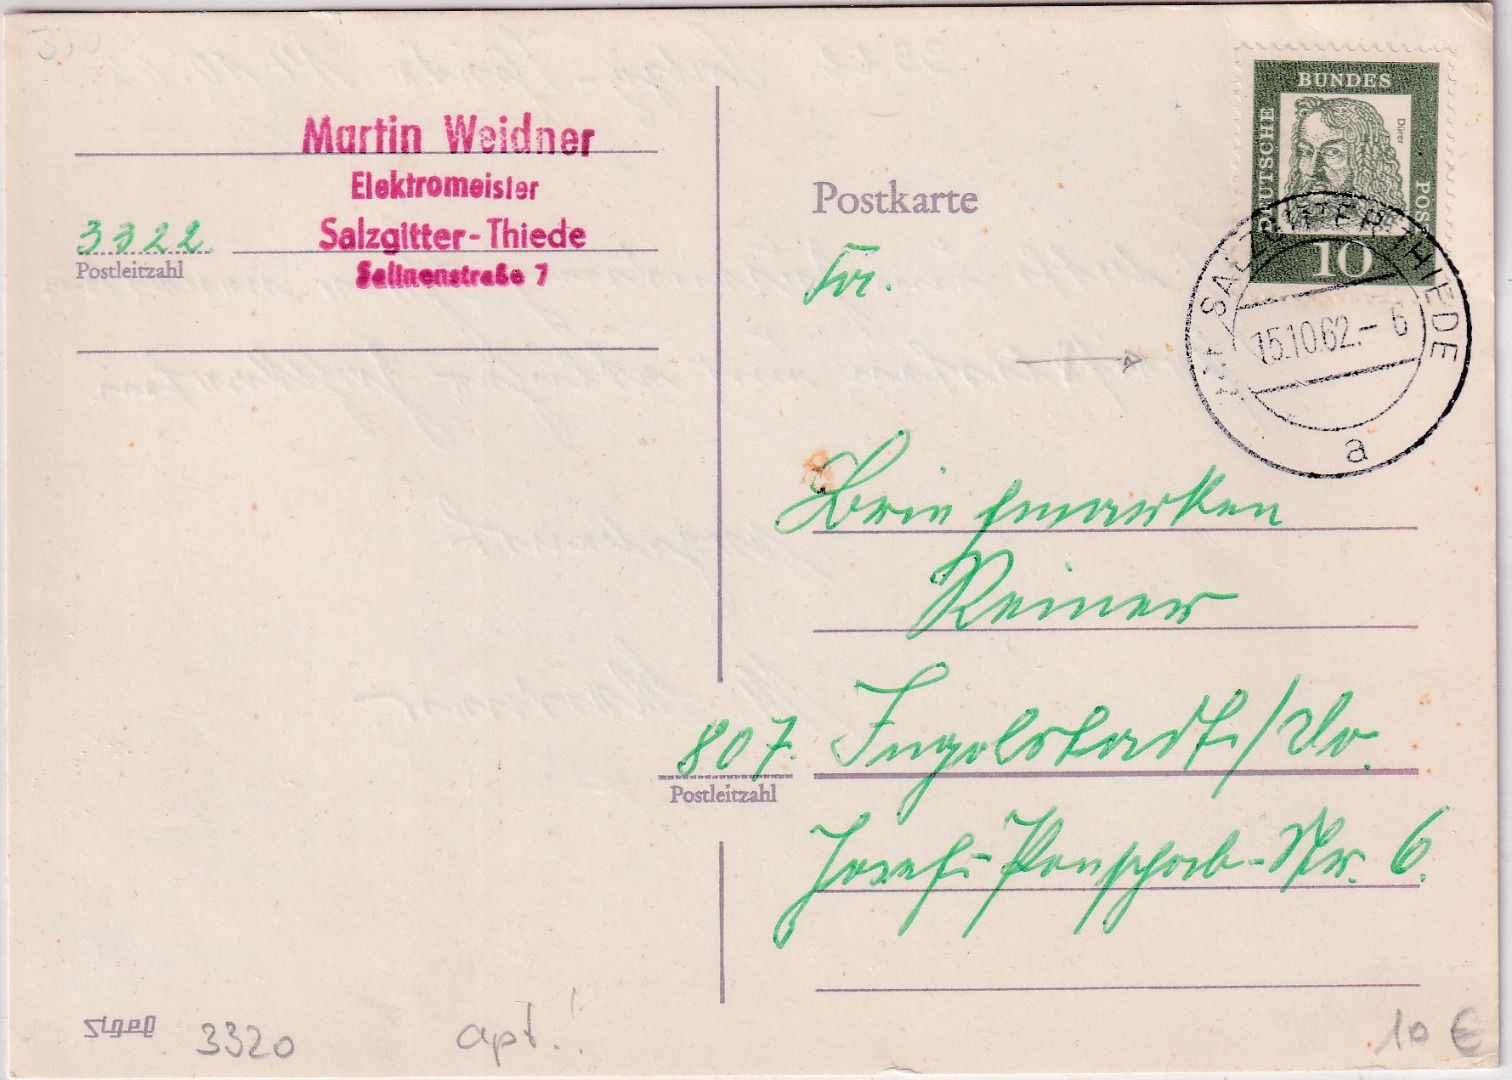 Martin Weidner
Elektromeister
Salzgitter-Thiede
Salinenstraße 7
3322.
Postleitzahl
Postkarte
Fr.
DEUTSCHE BUNDESPOST
Dürer
10
SALZGITTER-THIEDE
15.10.62.-6
a
Briefmarken
Reiner
807. Ingolstadt/Do.
Postleitzahl
Josef-Ponschab-Str. 6.
sigel
3320
apt.!
10 €